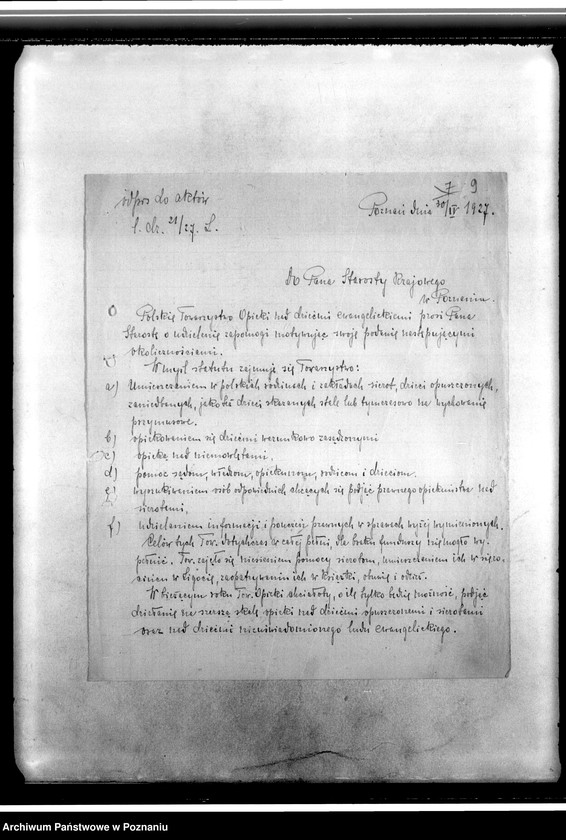 odpis do aktów
l. dz. 21/27. L.
7 9
Poznań dnia 30/IV 1927.
Do Pana Starosty Krajowego
w Poznaniu.
Polskie Towarzystwo Opieki nad dziećmi ewangelickiemi prosi Pana
Starostę o udzielenie zapomogi motywując swoje podanie następującymi
okolicznościami.
W myśl statutu zajmuje się Towarzystwo:
a) Umieszczaniem w polskich rodzinach i zakładach sierot, dzieci opuszczonych,
zaniedbanych, jakoteż dzieci skazanych stale lub tymczasowo na wychowanie
przymusowe.
b) opiekowaniem się dziećmi warunkowo zasądzonymi
c) opieką nad niemowlętami,
d) pomoc sądom, władzom, opiekunom, rodzicom i dzieciom.
e) wyszukiwaniem osób odpowiednich chcących się podjąć prawnego opiekuństwa nad
sierotami,
f) udzielaniem informacji i pomocy prawnych w sprawach wyżej wymienionych.
Celów tych Tow. dotychczas w całej pełni, dla braku funduszy nie mogło wy-
pełnić. Tow. zajęło się niesieniem pomocy sierotom, umieszczaniem ich w
w Ligocie, zaopatrywaniem ich w książki, obuwie i odzież.
W bieżącym roku Tow. Opieki chciałoby, o ile tylko będzie możność, podjąć
działanie na szerszą skalę opieki nad dziećmi opuszczonemi i sierotami
oraz nad dziećmi nieuświadomionego ludu ewangelickiego.
Archiwum Państwowe w Poznaniu